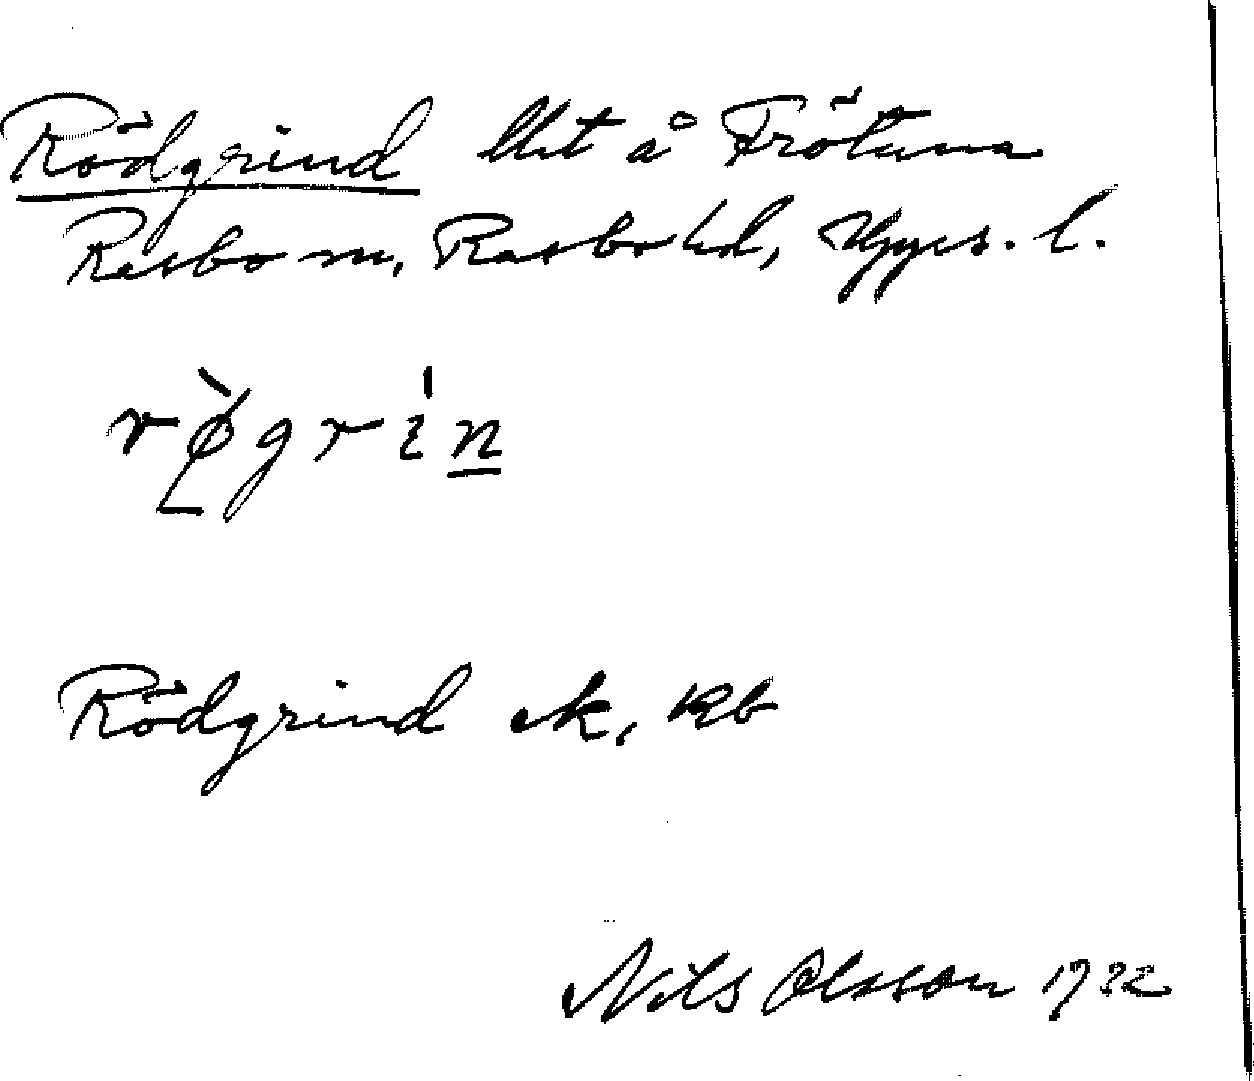 Rödgrind lht å Frötuna
Rasbo sn, Rasbo hd, Upps. l.
rø̀grín
Rödgrind ek, Rb
Nils Olsson 1932